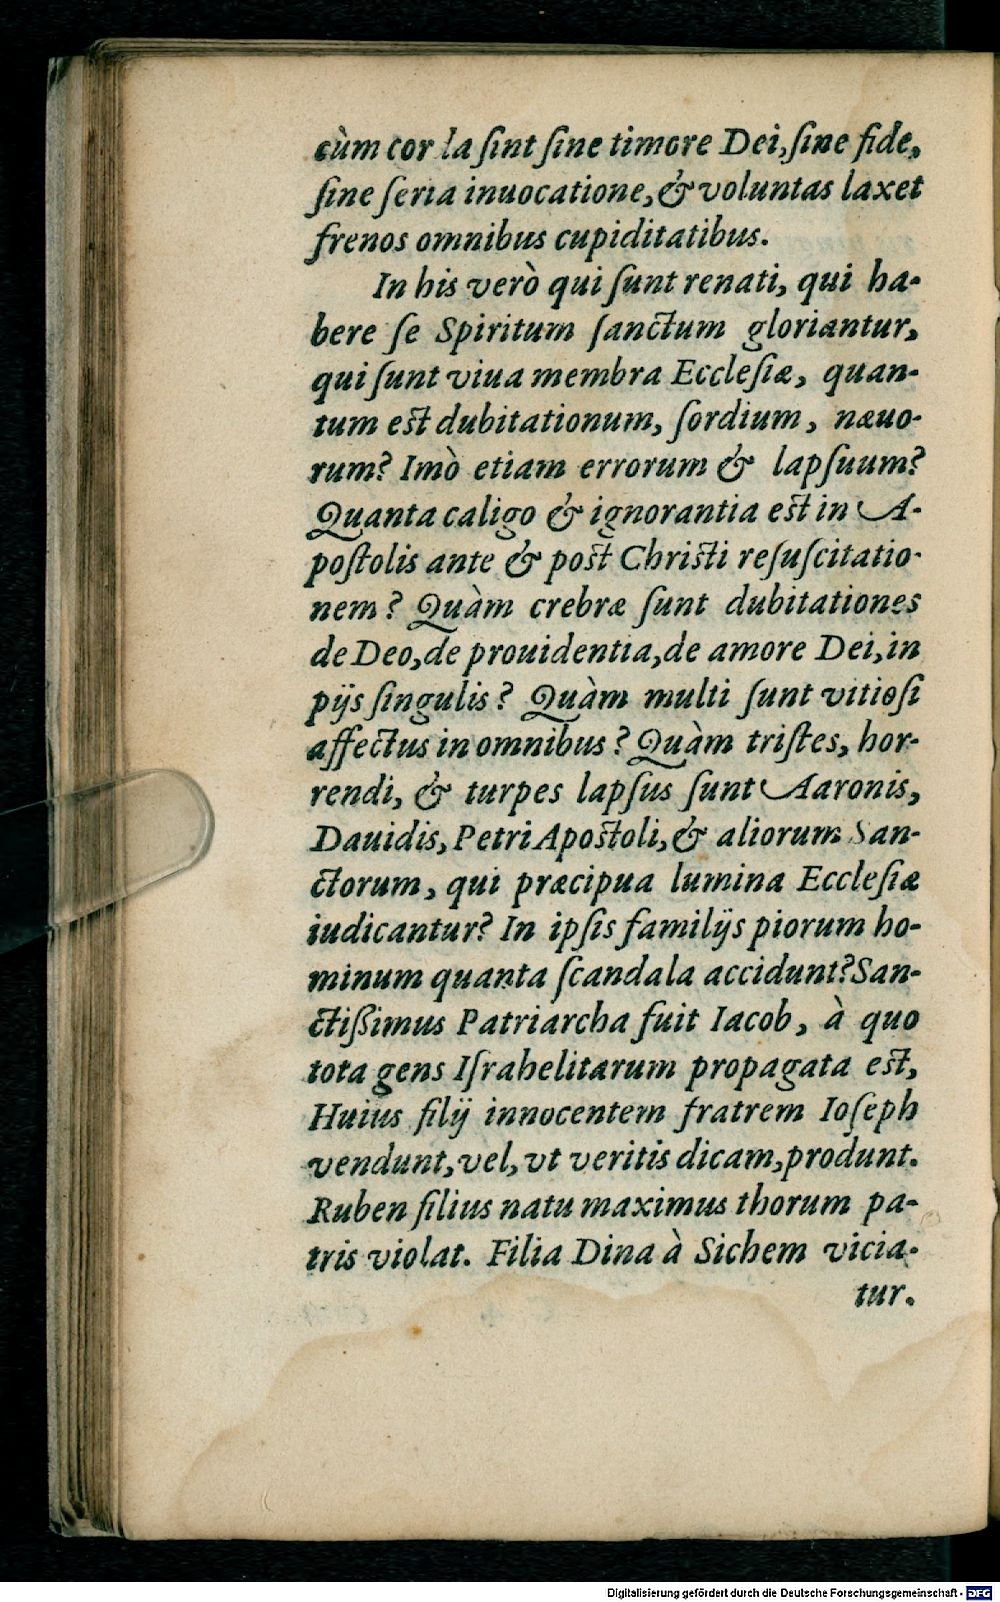 cùm cor la ſint ſine timore Dei, ſine fide,
ſine ſeria inuocatione, & voluntas laxet
frenos omnibus cupiditatibus.
In his verò qui ſunt renati, qui ha-
bere ſe Spiritum ſanctum gloriantur,
qui ſunt viua membra Eccleſiæ, quan-
tum eſt dubitationum, ſordium, næuo-
rum? Imò etiam errorum & lapſuum?
Quanta caligo & ignorantia eſt in A-
poſtolis ante & poſt Chriſti reſuſcitatio-
nem? Quàm crebræ ſunt dubitationes
de Deo, de prouidentia, de amore Dei, in
pijs ſingulis? Quàm multi ſunt vitioſi
affectus in omnibus? Quàm triſtes, hor-
rendi, & turpes lapſus ſunt Aaronis,
Dauidis, Petri Apoſtoli, & aliorum San-
ctorum, qui præcipua lumina Eccleſiæ
iudicantur? In ipſis familijs piorum ho-
minum quanta ſcandala accidunt? San-
ctißimus Patriarcha fuit Iacob, à quo
tota gens Iſrahelitarum propagata eſt,
Huius filij innocentem fratrem Ioſeph
vendunt, vel, vt veritis dicam, produnt.
Ruben filius natu maximus thorum pa-
tris violat. Filia Dina à Sichem vicia-
tur.
Digitalisierung gefördert durch die Deutsche Forschungsgemeinschaft - DFG